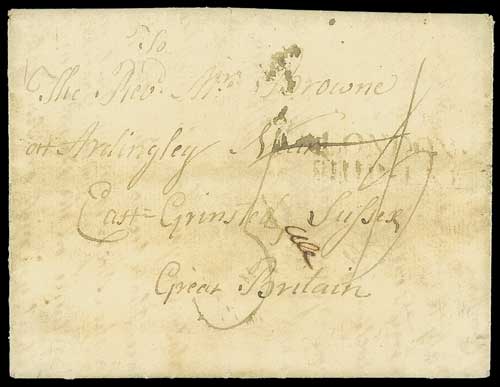 To
The Revd. Mr. Browne
att Ardingley Near
East=Grinsted Sussex
Great Britain